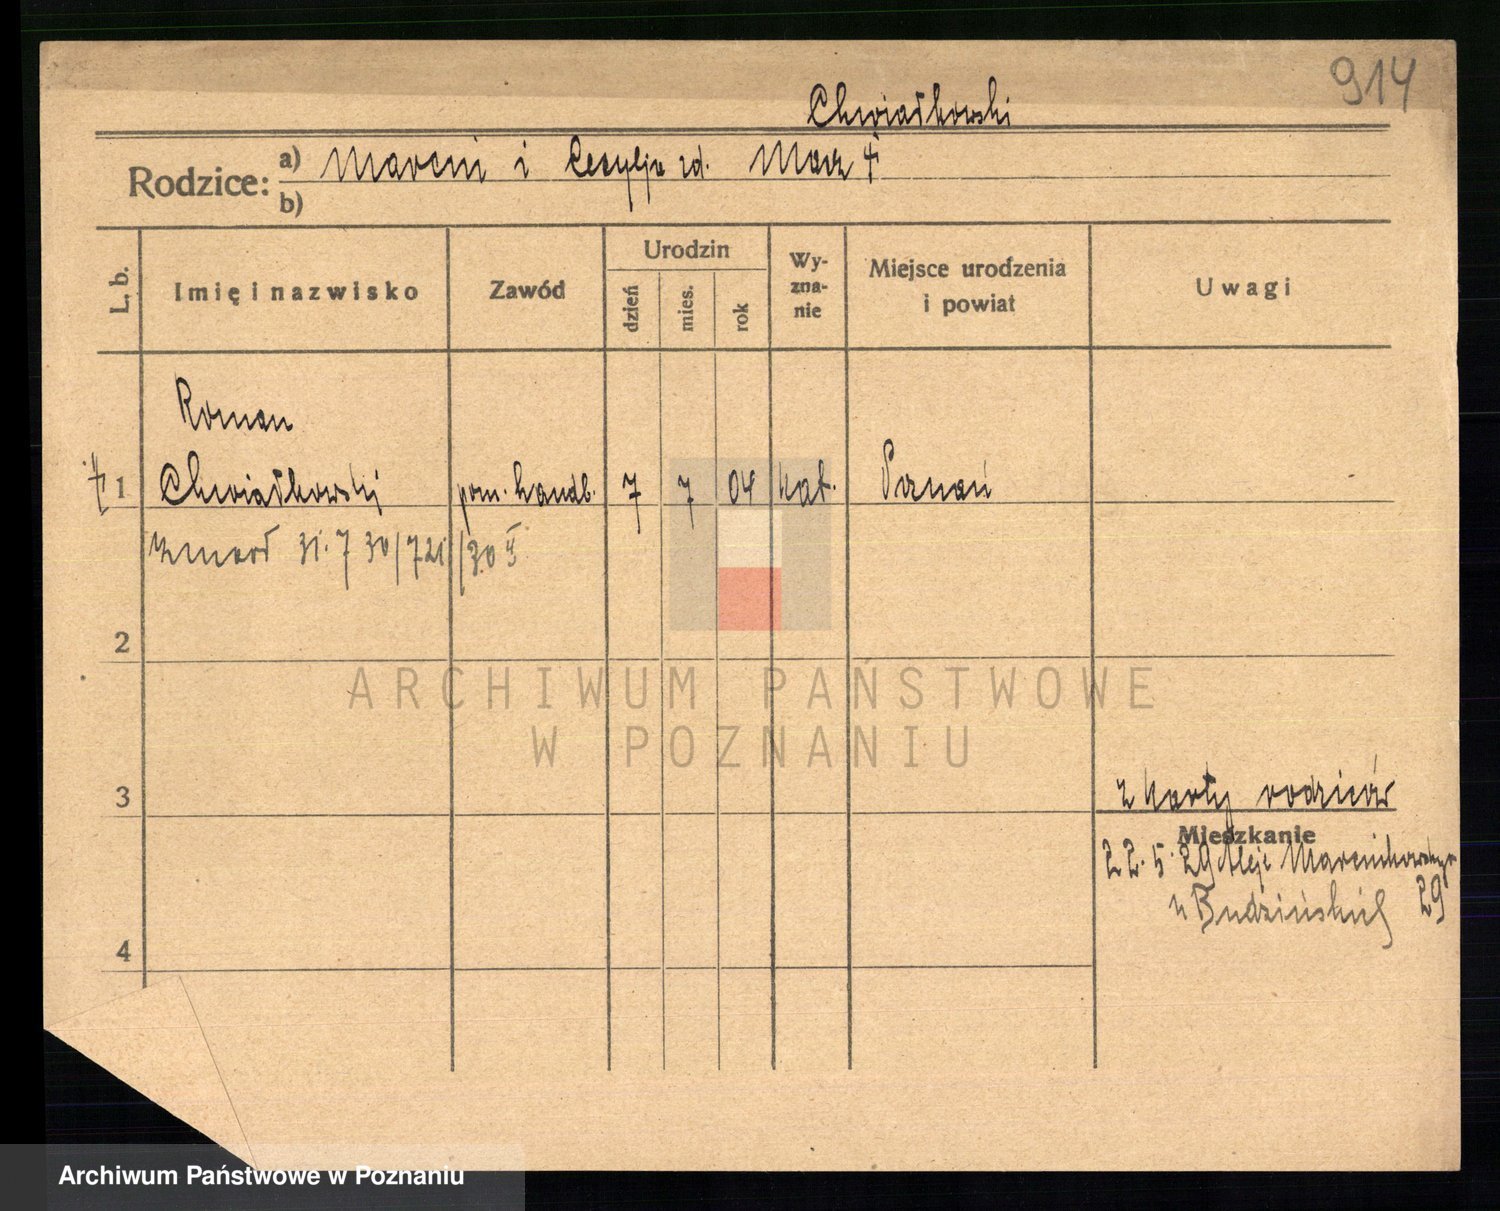 914
Chwiałkowski
Rodzice: a) Marcin i Cecylja zd.
b)
L. b. Imię i nazwisko Zawód Urodzin dzień mies. rok Wyznanie Miejsce urodzenia i powiat Uwagi
Roman
1 Chwiałkowski pom. handl. 7 7 04 kat. Poznań
zmarł 31. 7 30/721/30
2
3
z karty rodziców
Mieszkanie
22. 5. 29 Aleje Marcinkowskiego 29
u Budzińskich
4
ARCHIWUM PAŃSTWOWE
W POZNANIU
Archiwum Państwowe w Poznaniu